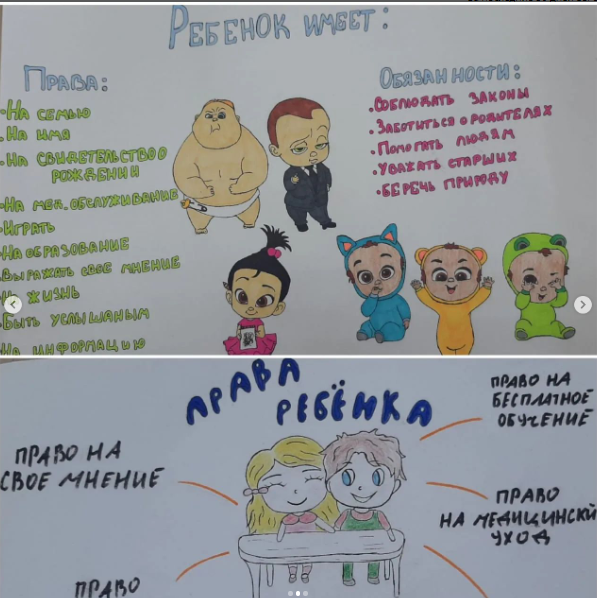 РЕБЕНОК ИМЕЕТ:
ПРАВА:
•НА СЕМЬЮ
•НА ИМЯ
•НА СВИДЕТЕЛЬСТВО О
РОЖДЕНИИ
•НА МЕД. ОБСЛУЖИВАНИЕ
•ИГРАТЬ
•НА ОБРАЗОВАНИЕ
ВЫРАЖАТЬ СВОЕ МНЕНИЕ
НА ЖИЗНЬ
БЫТЬ УСЛЫШАНЫМ
НА ИНФОРМАЦИЮ
ОБЯЗАННОСТИ:
•СОБЛЮДАТЬ ЗАКОНЫ
•ЗАБОТИТЬСЯ О РОДИТЕЛЯХ
•ПОМОГАТЬ ЛЮДЯМ
•УВАЖАТЬ СТАРШИХ
•БЕРЕЧЬ ПРИРОДУ
ПРАВА
РЕБЁНКА
ПРАВО НА
СВОЕ МНЕНИЕ
ПРАВО
ПРАВО НА
БЕСПЛАТНОЕ
ОБУЧЕНИЕ
ПРАВО
НА МЕДИЦИНСКИЙ
УХОД